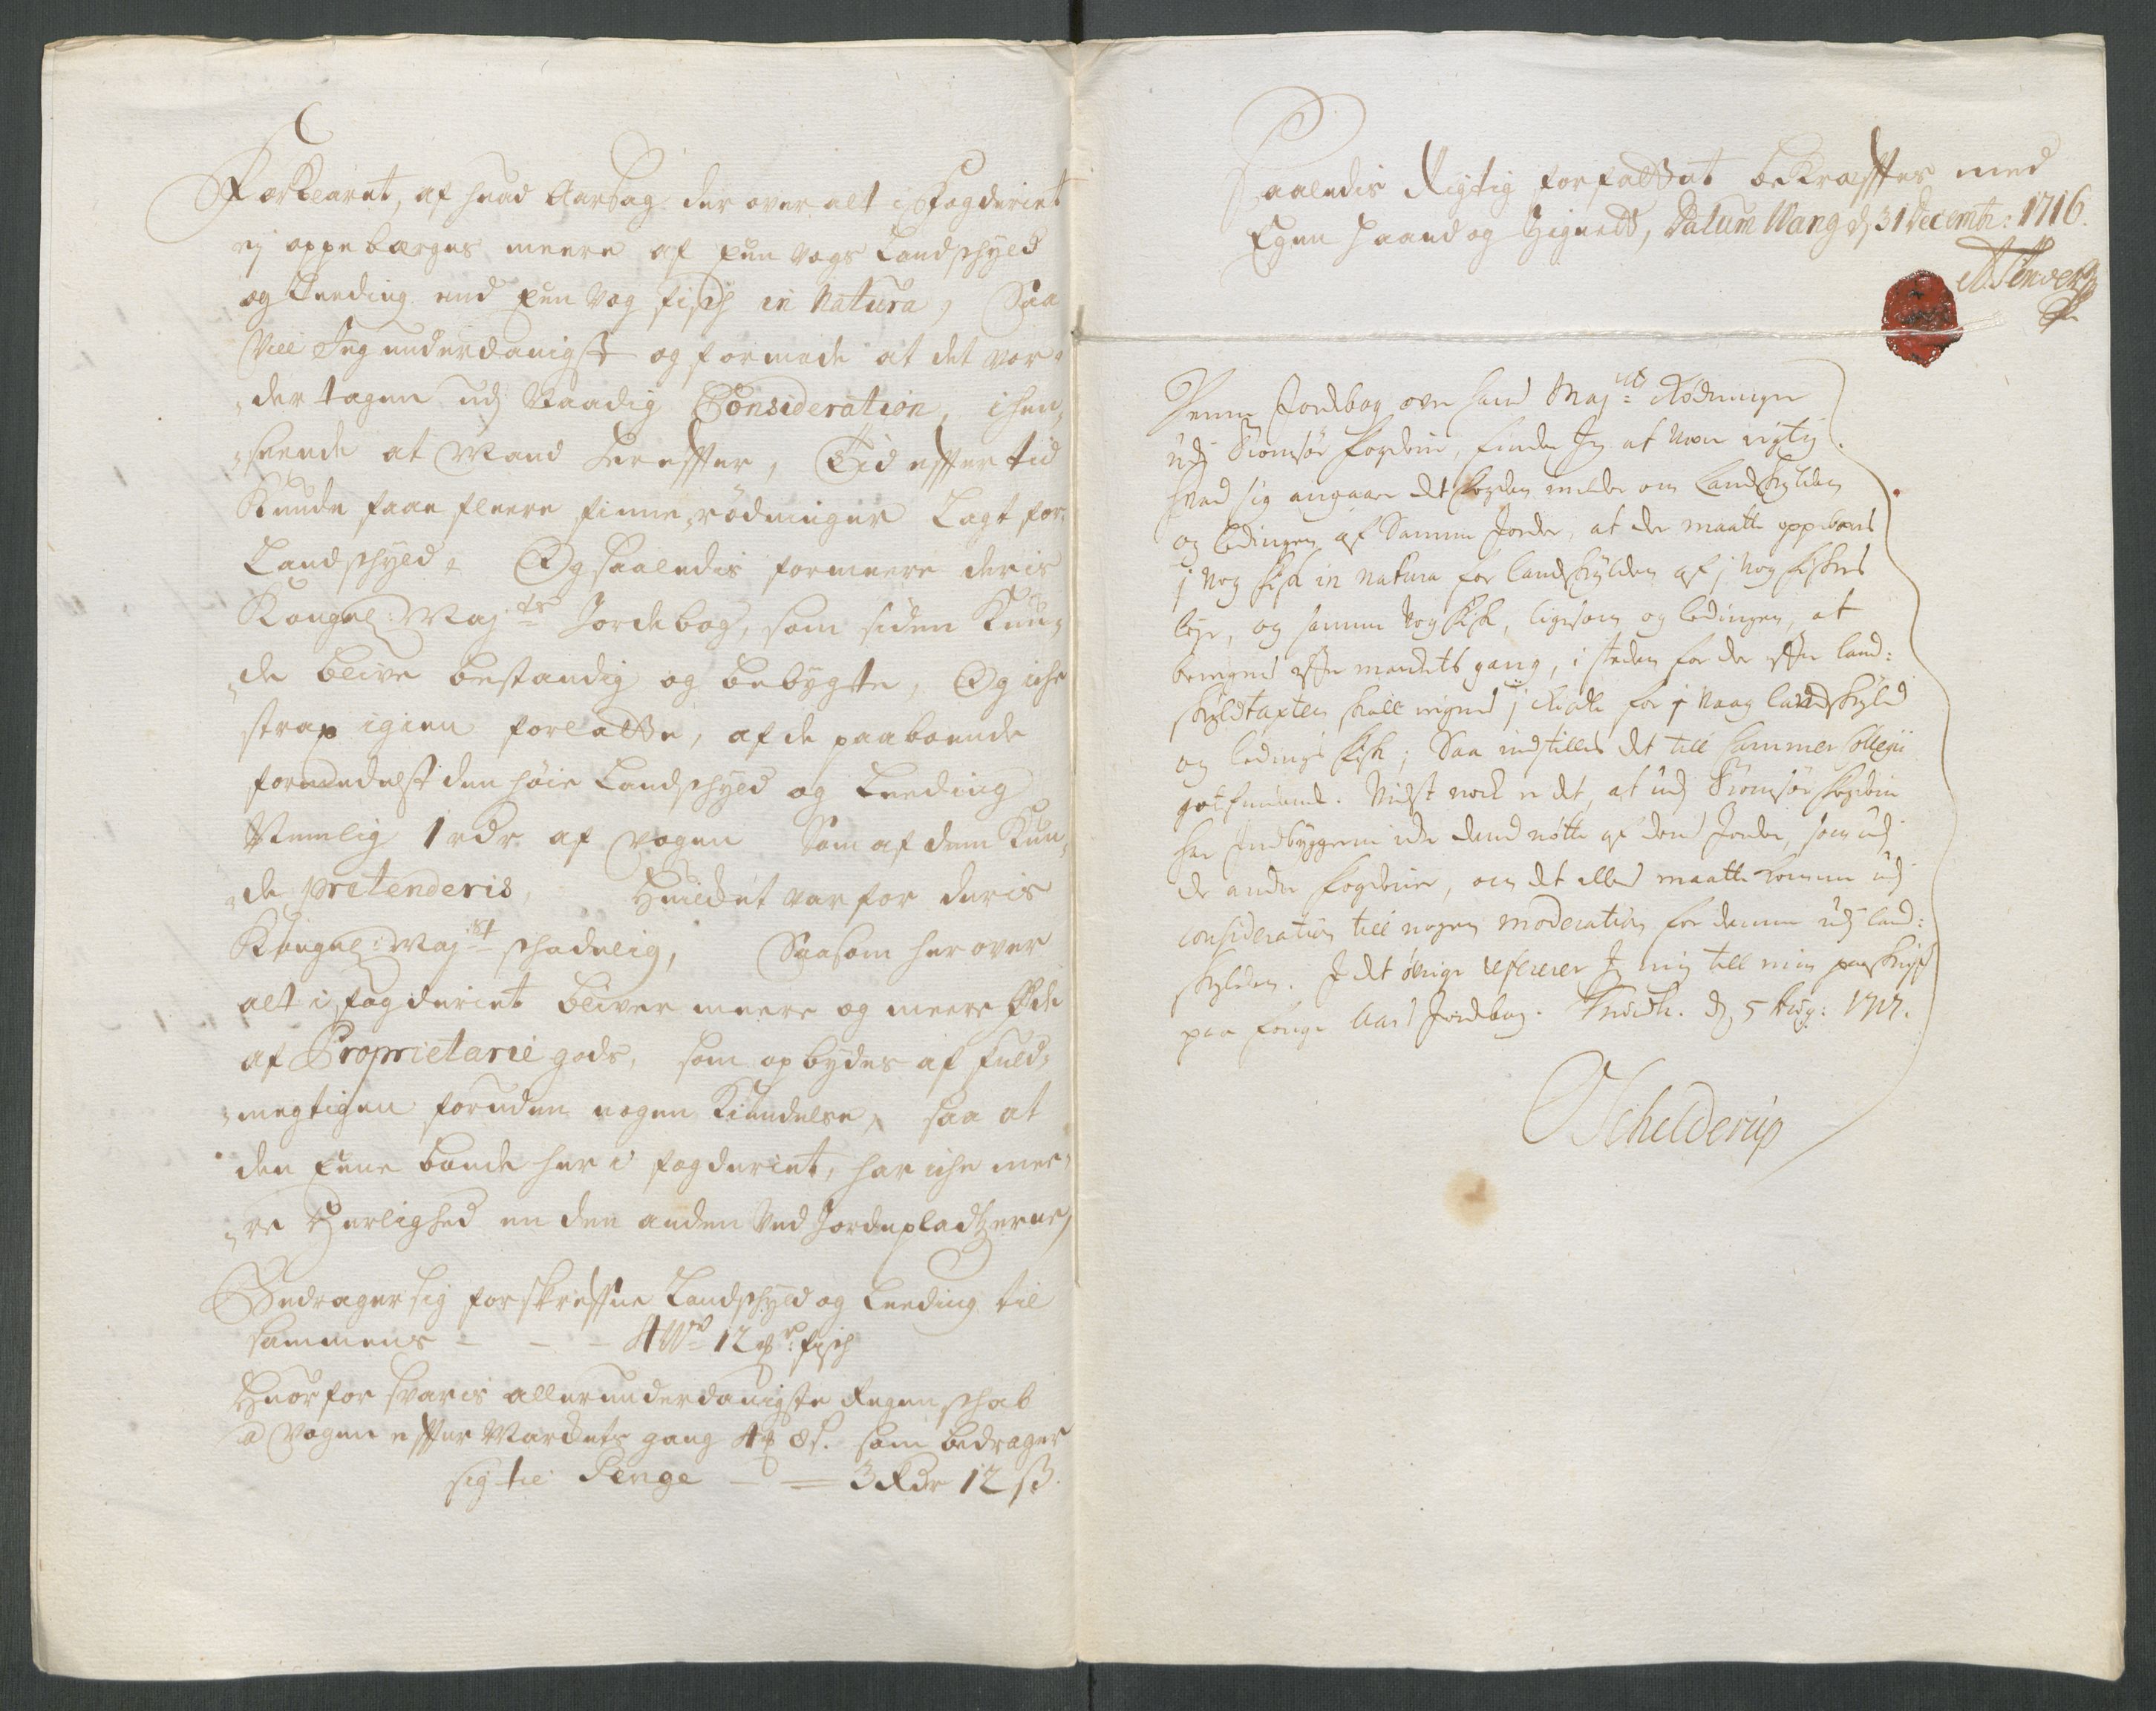 Forklaret, af huad Aarsag der over alt i Fogderiet
ej oppebærges meere af Een Vogs Landschyld
og Leeding end Een Vog fisch in Natura, Saa
Vill Jeg underdanigst og formode at det vor-
der tagen udj Naadig Consideration, i hen-
seende at Mand herefter, Tid efter tid
Kunde faae fleere finne rødninger Lagt for
Landschyld, Og saaledis formeere deris
Kongel: Maj:ts Jordebog, som siden Kun-
de blive bestandig og bebygte, Og iche
strax igien forladte, af de paaboende
formedelst den høie Landschyld og Leeding
Nemlig 1 rdr af Vogen Som af dem Kun-
de prætenderis, Huilchet var for deris
Kongel: Maj:st schadelig, Saasom her over
alt i fogderiet bliver meere og meere Øde
af Proprietarie gods, som opbydes af fuld-
megtigen foruden nogen Kiendelse, saa at
den Eene bonde her i fogderiet, har iche mee-
re Herlighed en den anden Ved Jordepladtzerne,
Bedrager sig forskrefne Landschyld og Leeding til
sammens - - - 4 W 12 pd: fisch
Huorfor svaris allerunderdanigste Regenschab
a Vogen efter Markets gang 4 ß. som bedrager
sig til Penge - = 3 Rdr 12 ß.
Saaledis Rigtig forfattet bekræffter med
Egen Haand og Zignett, Datum Wang d 31 Decembr: 1716.
Denne Jordebog over hans Maj:ts Rødninger
udj Tromsøe fogderie, finder Jeg at være rigtig.
hvad sig angaaer det fogden melder om Landskylden
og ledingen af samme Jorder, at der maatte oppebæris
1 Vog fisk in natura for landskylden af 1 Vog fiskes
leje, og samme Vog fisk, ligesom og ledingen, at
beregnes efter markets gang, i steden for der efter land:
skyldtaxten skall regnes 1 Rixdlr for 1 Vaag landskyld
og ledings fisk; Saa indstilles det till Cammer Collegii
gotfindende. Vidst nock er det, at udj Tromsøe fogderie
har Indbyggerne icke dend nøtte af deris Jorder, som udj
de andre fogderier, om det ellers maatte komme udj
consideration till nogen moderation for denne udj land:
skylden. I det øvrige refererer Jeg mig till min paaskrifft
paa forige Aars Jordebog. Trundh. d 5 Aug: 1717.
Schelderup